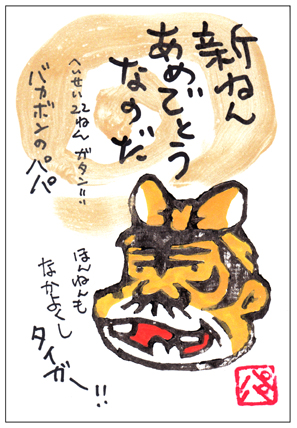 新ねん
あめでとう
なのだ
へいせい22ねん ガタン!!
バカボンのパパ
ほんねんも
なかよくし
タイガー!!
パパ